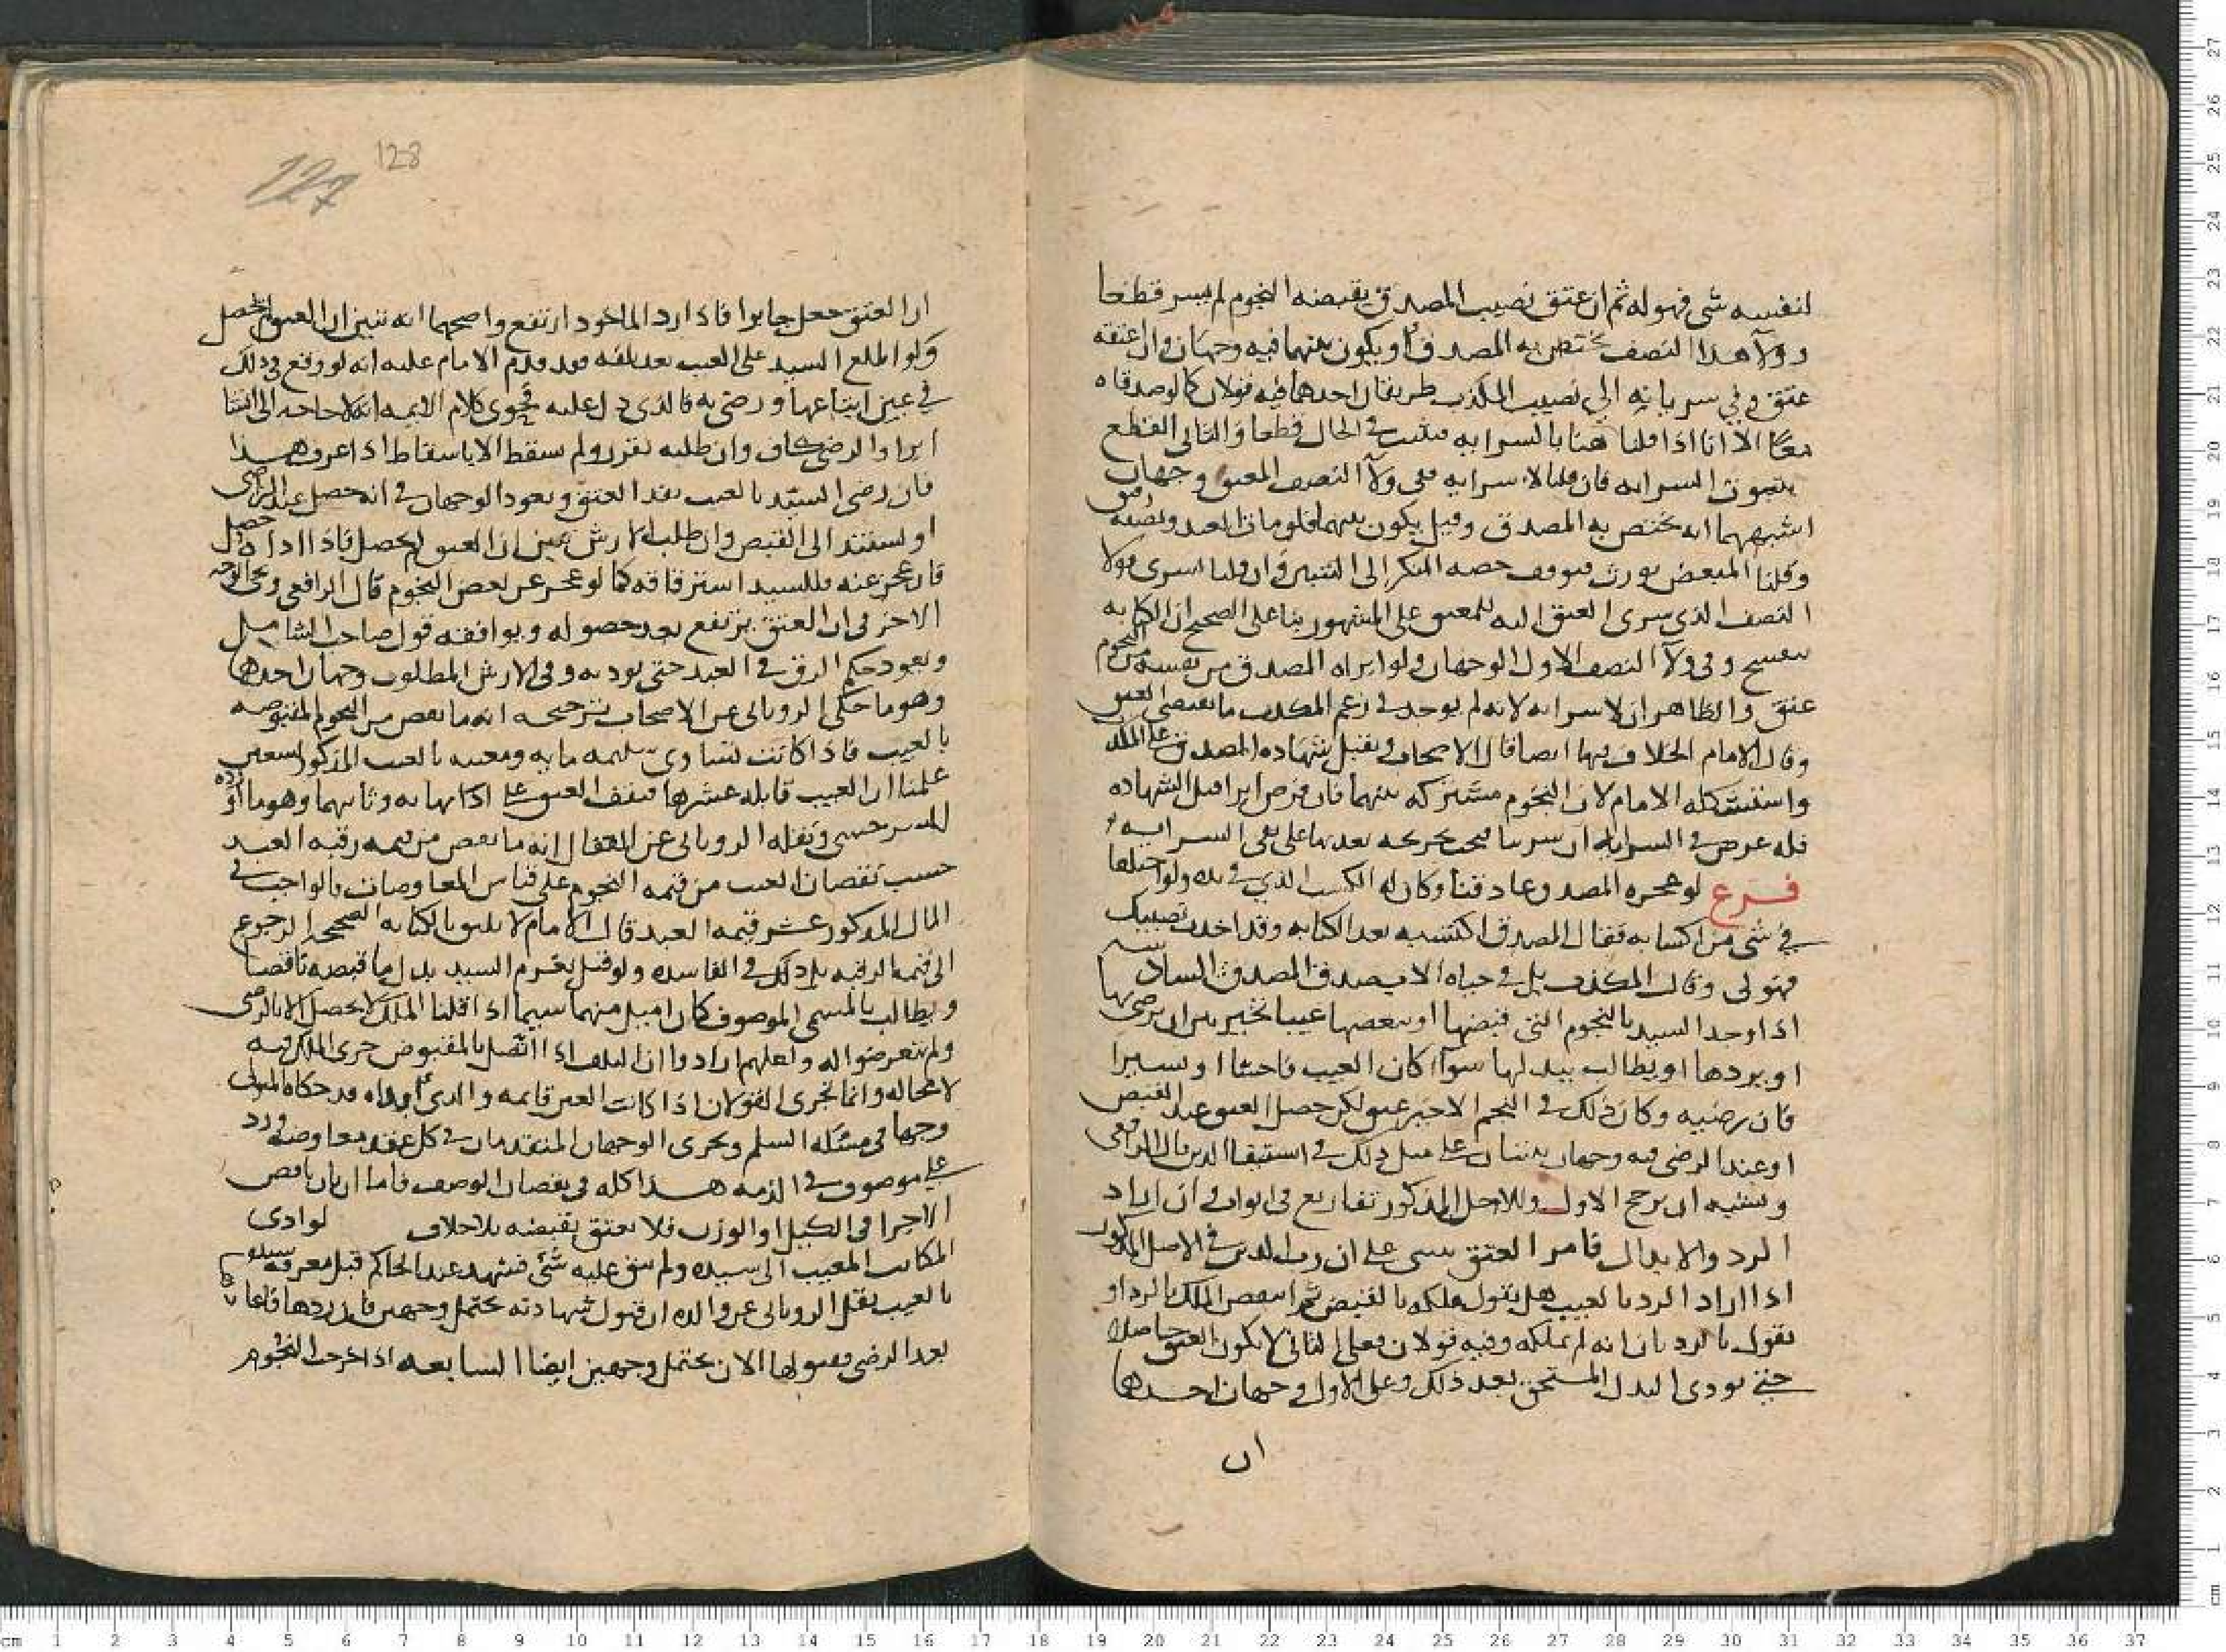 لنفسه شى فهو له ثم ان عتق نصيب المصدق بقبضه النجوم لم يسر قطعا
وولآ هذا النصف يختص به المصدق أو يكون بينهما فيه وجهان وان اعتقه
عتق وفي سرايته الي نصيب المكذب طريقان احدهما فيه قولان كما لو صدقاه
معا الا انا اذا قلنا هنا بالسرايه فيثبت في الحال قطعا والثانى القطع
بثبوت السرايه فان قلنا لا سرايه ففى ولآ النصف المعتق وجهان
اشبههما انه يختص به المصدق وقيل يكون بينهما فلو مات العبد ونصفه رقيق
وقلنا المبعض يورث فيوقف حصه المنكر الى التبين وان قلنا يسرى فولا
النصف الذى سرى العتق اليه للمعتق على المشهور بنا على الصحيح ان الكتابه
تنفسخ وفى ولآ النصف الاول الوجهان ولو ابراه المصدق من نصيبه من النجوم
عتق والظاهر ان لا سرايه لانه لم يوجد في زعم المكذب ما يقتضى العتق
وقال الامام الخلاف فيها ايضا قال الاصحاب وتقبل شهاده المصدق على المكذب
واستشكله الامام لان النجوم مشتركه بينهما فان فرض ابرا قبل الشهاده
فله غرض في السرايه ان سرينا فيجب تخريجه بعدها على نفى السرايه
فرع لو عجزه المصدق وعاد قنا وكان له الكسب الذي في يده ولو اختلفا
في شى من اكسابه فقال المصدق اكتسبه بعد الكتابه وقد اخذت نصيبك
فهو لى وقال المكذب بل في حياه الاب صدق المصدق السادسه
اذا وجد السيد بالنجوم التى قبضها او ببعضها عيبا تخير بين ان يرضى بها
او يردها او يطالب ببدلها سوآ كان العيب فاحشا او يسيرا
فان رضيه وكان ذلك في النجم الاخير عتق لكن حصل العتق عند القبض
او عند الرضى فيه وجهان بنتان على مثل ذلك في استيفا الدين قال الرافعى
ويشبه ان يرجح الاول وللاصل المذكور تفاريع في ابواب وان اراد
الرد والابدال فامر العتق يبنى على ان رب الدين في الاصل المذكور
اذا اراد الرد بالعيب هل يقول ملكه بالقبض ثم انتقض الملك بالرد او
نقول بالرد بان انه لم يملكه وفيه قولان فعلى الثانى لا يكون العتق حاصلا
حتى يودى البدل المستحق بعد ذلك وعلى الاول وجهان احدها
ان
128
127
ان العتق جعل جابرا فاذا رد الماخوذ ارتفع واصحهما انه تبين ان العتق لم يحصل
ولو اطلع السيد على العيب بعد تلفه فقد قدم الامام عليه انه لو وقع في ذلك
في عين ابتاعها ورضى به فالذى دل عليه فحوى كلام الايمه انه لا حاجه الى انشا
ابرا والرضى كاف وان طلبه تقرر ولم يسقط الا باسقاط اذا عرف هذا
فان رضى السيد بالعيب نفذ العتق ويعود الوجهان في انه حصل عند الرضى
او يستند الى القبض وان طلب الارش تبين ان العتق لم يحصل فاذا اداه حصل
فان عجز عنه فللسيد استرقاقه كما لو عجز عن بعض النجوم قال الرافعى ويجى الوجه
الاخر في ان العتق يرتفع بعد حصوله ويوافقه قول صاحب الشامل
ويعود حكم الرق في العبد حتى يوديه وفي الارش المطلوب وجهان احدها
وهو ما حكى الرويانى عن الاصحاب ترجيحه انه ما نقص من النجوم المقبوضه
بالعيب فاذا كانت تساوى سليمه مايه ومعيبه بالعيب المذكور تسعين
علمنا ان العيب قابله عشرها فيقف العتق على اداها به وثانيهما وهو ما اورده
السرخسى ونقله الرويانى عن القفال انه ما نقص من قيمه رقبه العبد
حسب نقصان العيب من قيمه النجوم على قياس المعاوضات فالواجب في
المال المذكور عشر قيمه العبد قال الامام لا يليق بالكتابه الصحيحه الرجوع
الى قيمه الرقبه بل ذلك في الفاسده ولو قيل يغرم السيد بدل ما قبضه ناقصا
ويطالب بالمسمى الموصوف كان امثل منهما سيما اذا قلنا الملك لا يحصل الا بالرضى
ولم يتعرضوا له ولعلهم ارادوا ان التلف اذا اتصل بالمقبوض جرى الملك فيه
لا محاله وانما تجرى القولان اذا كانت العين قايمه والذى أبداه قد حكاه المتولى
وجها في مسئله السلم ويجرى الوجهان المتقدمان في كل عقد معاوضه ورد
على موصوف في الذمه هذا كله في نقصان الوصف فاما ان بان ناقص
الاجزا في الكيل او الوزن فلا يعتق بقبضه بلا خلاف لو ادى
المكاتب المعيب الى سيده ولم يبق عليه شئ فشهد عند الحاكم قبل معرفه سيده
بالعيب نقل الرويانى عن والده ان قبول شهادته يحتمل وجهين فان ردها فاعادها
بعد الرضى فقبولها الان يحتمل وجهين ايضا السابعه اذا خرجت النجوم